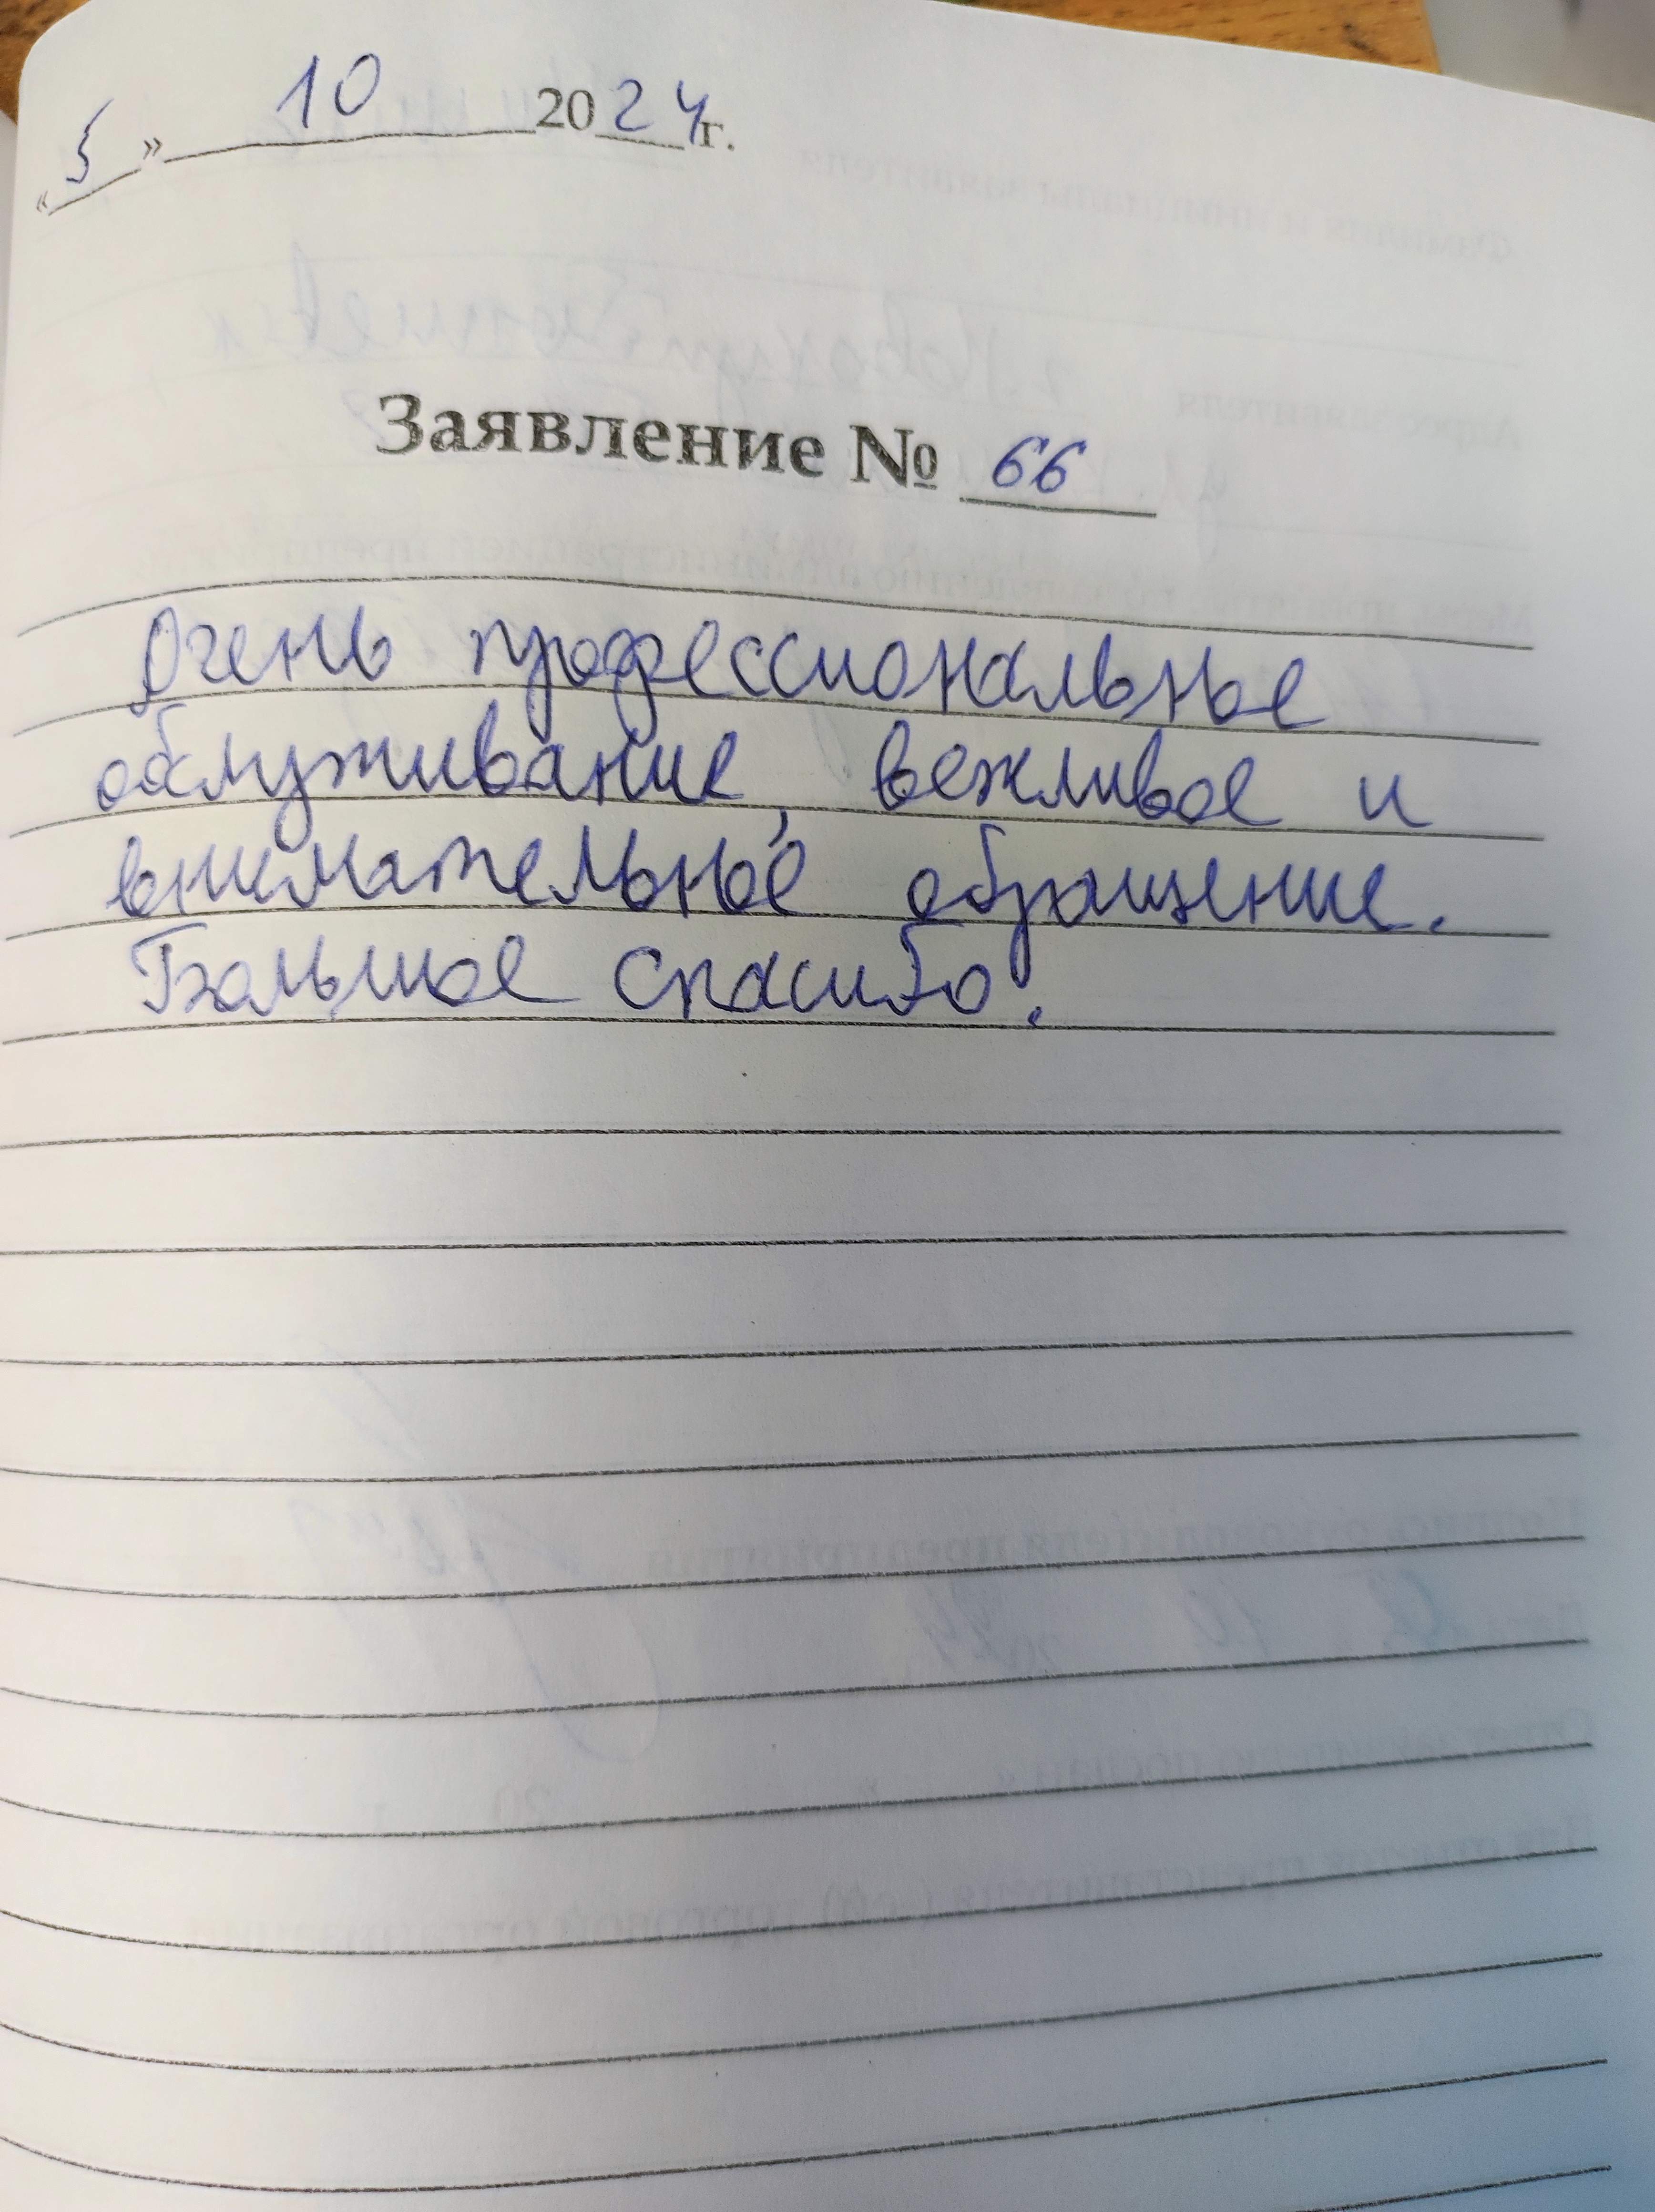 «5» 10 2024г.
Заявление № 66
Очень профессиональное
обслуживание, вежливое и
внимательное обращение.
Большое спасибо.